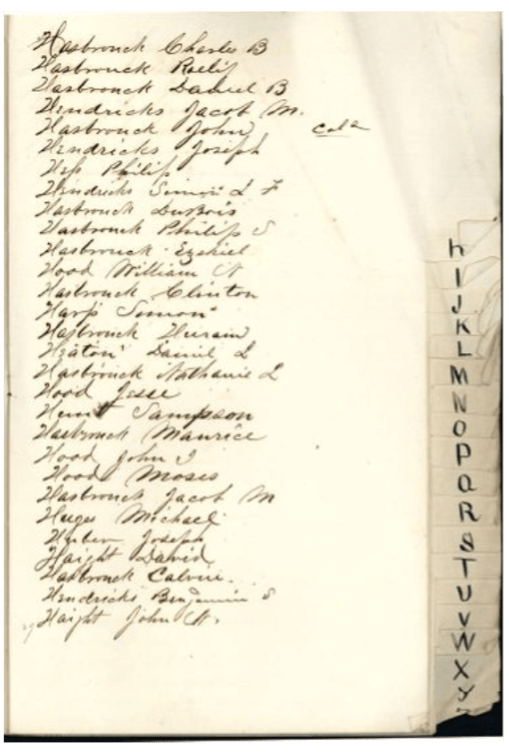 Hasbrouck Charles B
Hasbrouck Roelif
Hasbrouck Daniel B
Hendricks Jacob M.
Hasbrouck John Cold
Hendricks Joseph
Hess Philip
Hendricks Simon L F
Hasbrouck DuBois
Hasbrouck Philip S
Hasbrouck Ezekiel
Hood William N
Hasbrouck Clinton
Harp Simon
Hasbrouck Hiram
Heaton Daniel L
Hasbrouck Nathaniel
Hood Jesse
Hunt Sampson
Hasbrouck Maurice
Hood John J
Hood Moses
Hasbrouck Jacob M
Huges Michael
Huber Joseph
Haight David
Hasbrouck Calvin.
Hendricks Benjamin S
Haight John N.
h
I
J
K
L
M
N
O
P
Q
R
S
T
U
V
W
X
Y